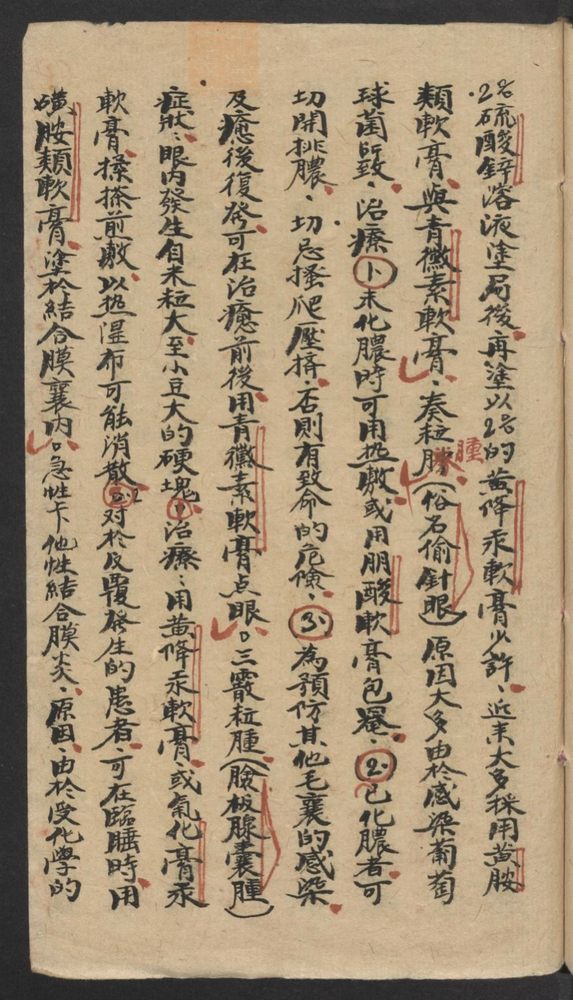 2%硫酸鋅溶液塗局後、再塗以2%的黃降汞軟膏少許、近来大多採用黃胺
類軟膏、與青黴素軟膏、麥粒腫(俗名偷針眼)原因大多由於感染葡萄
球菌所致、治療(1)未化膿時可用热敷、或用朋酸軟膏包罨、(2)已化膿者可
切開排膿、切忌搔爬壓擠、否則有致命的危險、(3)為預防其他毛襄的感染
及癒後復發、可在治癒前後用青黴素軟膏点眼。三霰粒腫(臉板腺囊腫)
症狀:眼內發生自米粒大至小豆大的硬塊(1)治療:用黃降汞軟膏、或氧化膏汞
軟膏、揉搽前敷、以热湿布可能消散(2)对於反覆發生的患者、可在臨睡時用
磺胺類軟膏、塗於結合膜襄內。急性卡他性結合膜炎、原因、由於受化學的